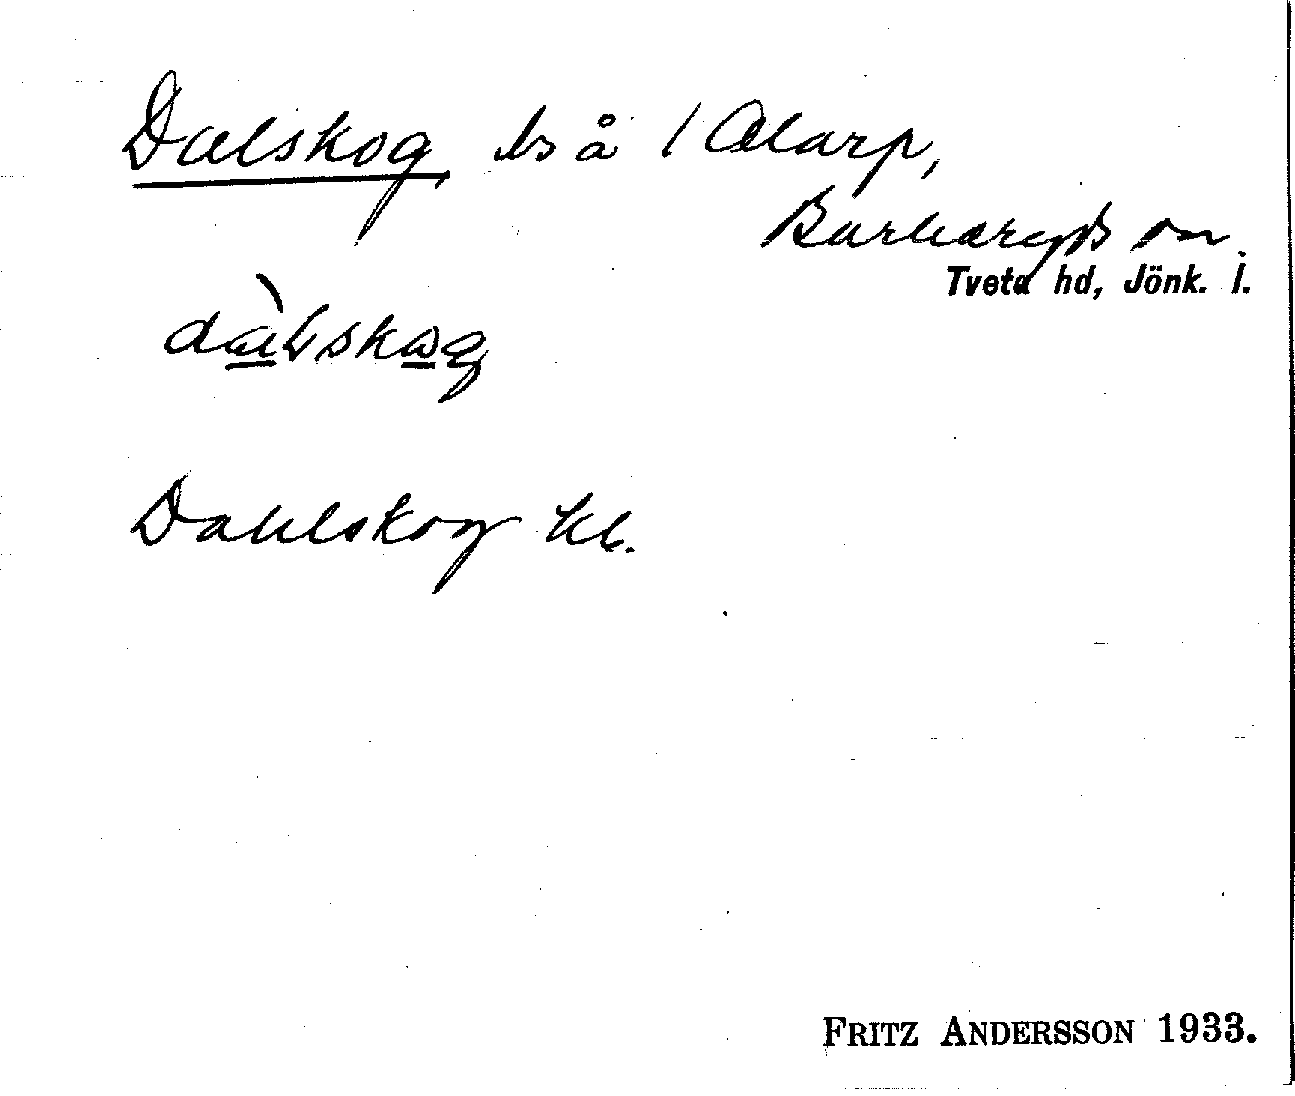 Dalskog, ls å 1 Alarp,
Barkeryds sn.
Tveta hd, Jönk. l.
dàlskog
Dahlskog kb.
FRITZ ANDERSSON 1933.